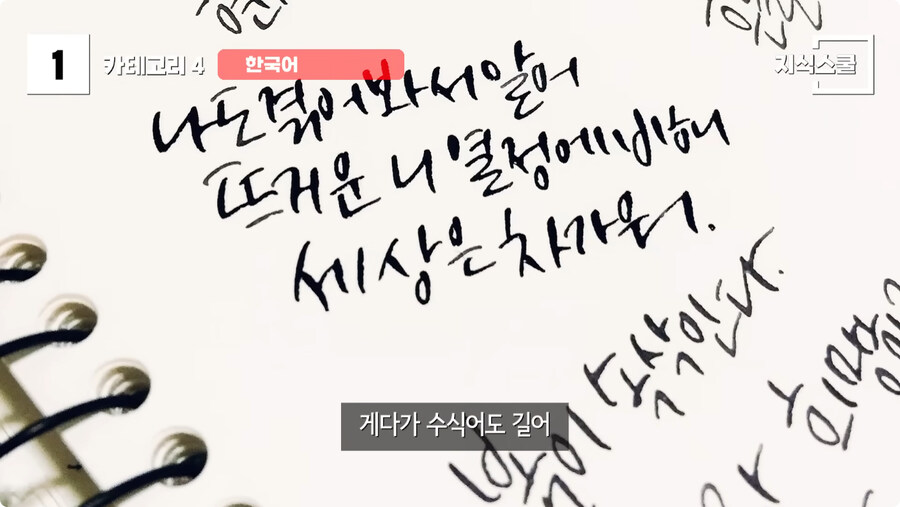 1
카테고리 4
한국어
지식스쿨
나도 겪어봐서 알어
뜨거운 니 열정에 비해
세상은 차가워.
시작인다.
게다가 수식어도 길어